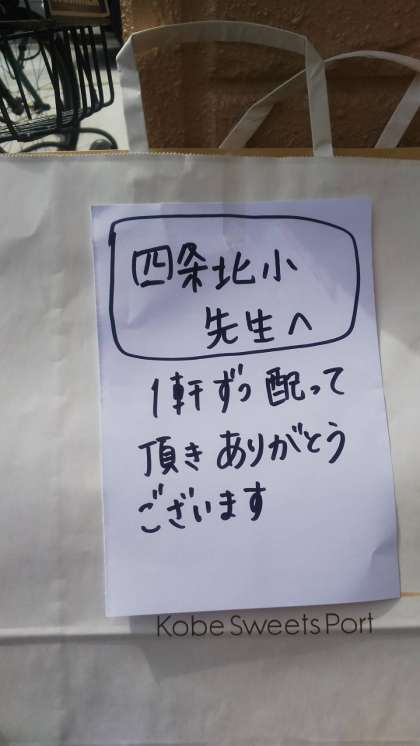 四条北小
先生へ
1軒ずつ配って
頂きありがとう
ございます
Kobe Sweets Port